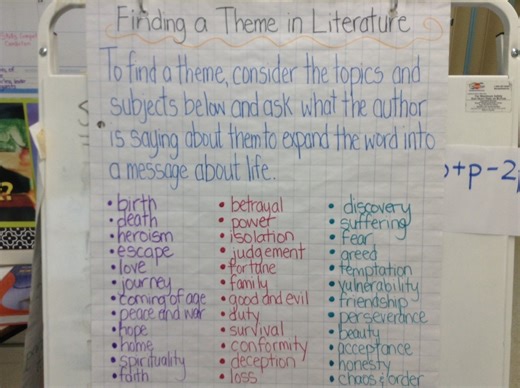 Finding a Theme in Literature
To find a theme, consider the topics and
subjects below and ask what the author
is saying about them to expand the word into
a message about life.
• birth
• death
• heroism
• escape
• love
• journey
• coming of age
• peace and war
• hope
• home
• spirituality
• faith
• betrayal
• power
• isolation
• judgement
• fortune
• family
• good and evil
• duty
• survival
• conformity
• deception
• loss
• discovery
• suffering
• fear
• greed
• temptation
• vulnerability
• friendship
• perseverance
• beauty
• acceptance
• honesty
• chaos & order
+p-2